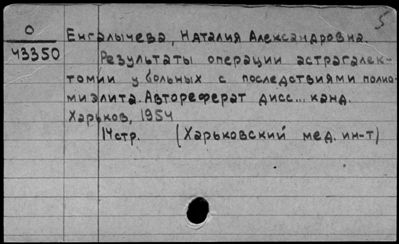 5
О
43350
Енгалычева, Наталия Александровна.
Результаты операции астрагалэк-
томии у больных с последствиями полио-
миэлита. Автореферат дисс... канд.
Харьков, 1954
14стр. (Харьковский мед. ин-т)